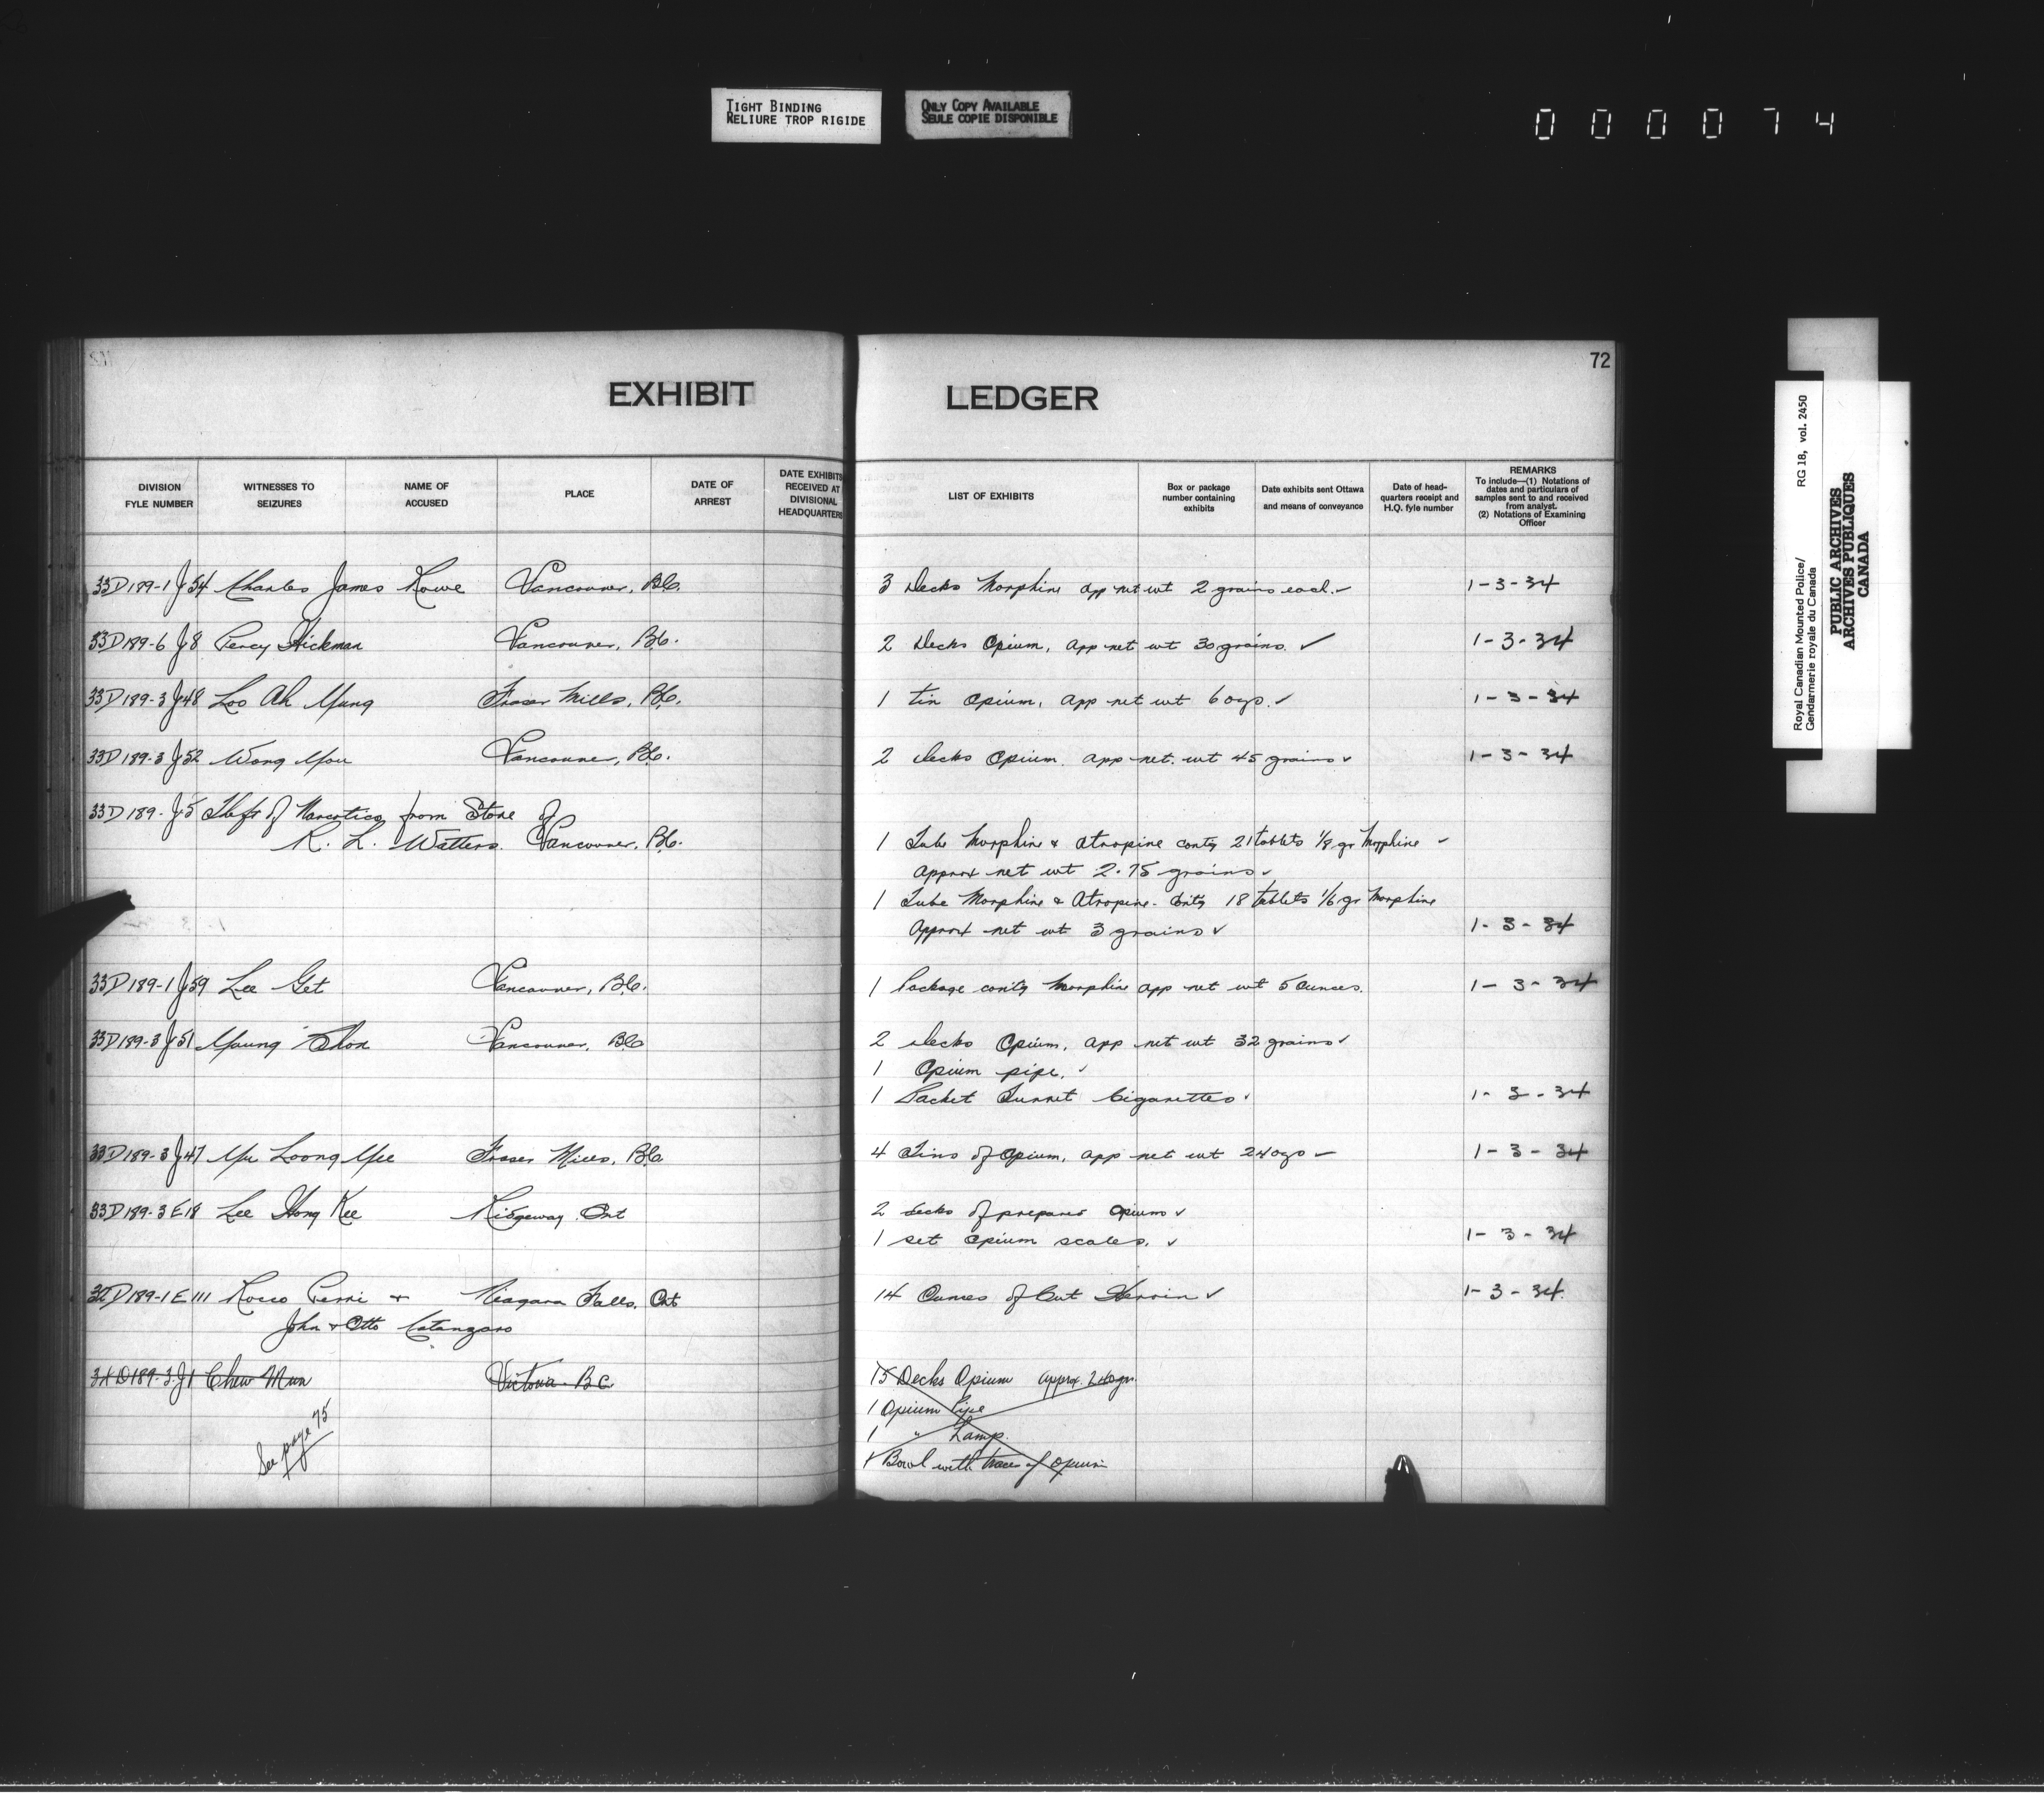 TIGHT BINDING
RELIURE TROP RIGIDE
ONLY COPY AVAILABLE
SEULE COPIE DISPONIBLE
000074
72
EXHIBIT LEDGER
DIVISION FYLE NUMBER
WITNESSES TO SEIZURES
NAME OF ACCUSED
PLACE
DATE OF ARREST
DATE EXHIBITS RECEIVED AT DIVISIONAL HEADQUARTERS
LIST OF EXHIBITS
Box or package number containing exhibits
Date exhibits sent Ottawa and means of conveyance
Date of headquarters receipt and H.Q. fyle number
REMARKS
To include—(1) Notations of dates and particulars of samples sent to and received from analyst.
(2) Notations of Examining Officer
33D189-1 J54 Charles James Rowe Vancouver, B.C. 3 Decks Morphine app net wt 2 grains each. ✓ 1-3-34
33D189-6 J8 Percy Hickman Vancouver, B.C. 2 Decks Opium, app net wt 30 grains. ✓ 1-3-34
33D189-3 J48 Loo Ah Yung Fraser Mills, B.C. 1 tin opium, app net wt 6 ozs. ✓ 1-3-34
33D189-3 J52 Wong You Vancouver, B.C. 2 decks Opium. app net. wt 45 grains ✓ 1-3-34
33D189-J5 Theft of Narcotics from Store of
R. L. Watters. Vancouver, B.C. 1 Tube Morphine & Atropine contg 21 tablets 1/8 gr Morphine ✓
approx net wt 2.75 grains ✓
1 Tube Morphine & Atropine - contg 18 tablets 1/6 gr Morphine
Approx net wt 3 grains ✓ 1-3-34
33D189-1 J59 Lee Get Vancouver, B.C. 1 Package contg Morphine app net wt 5 Ounces. 1-3-34
33D189-3 J51 Young Shon Vancouver, B.C. 2 decks Opium, app net wt 32 grains ✓
1 Opium pipe. ✓
1 Packet Turret Cigarettes ✓ 1-3-34
33D189-3 J47 Yu Loong Yee Fraser Mills, B.C. 4 Tins of Opium, app net wt 24 ozs ✓ 1-3-34
33D189-3 E18 Lee Hong Kee Ridgeway, Ont 2 decks of prepared opium ✓
1 set opium scales. ✓ 1-3-34
32D189-1 E111 Rocco Perri + Niagara Falls, Ont 14 Ounces of Cut Heroin ✓ 1-3-34.
John + Otto Catanzaro
34D189-3-J1 Chew Mun Victoria. B.C. 15 Decks Opium approx. 240 grs.
1 Opium Pipe
1 " Lamp.
1 Bowl with traces of opium
See page 75
Royal Canadian Mounted Police/ RG 18, vol. 2450
Gendarmerie royale du Canada
PUBLIC ARCHIVES
ARCHIVES PUBLIQUES
CANADA